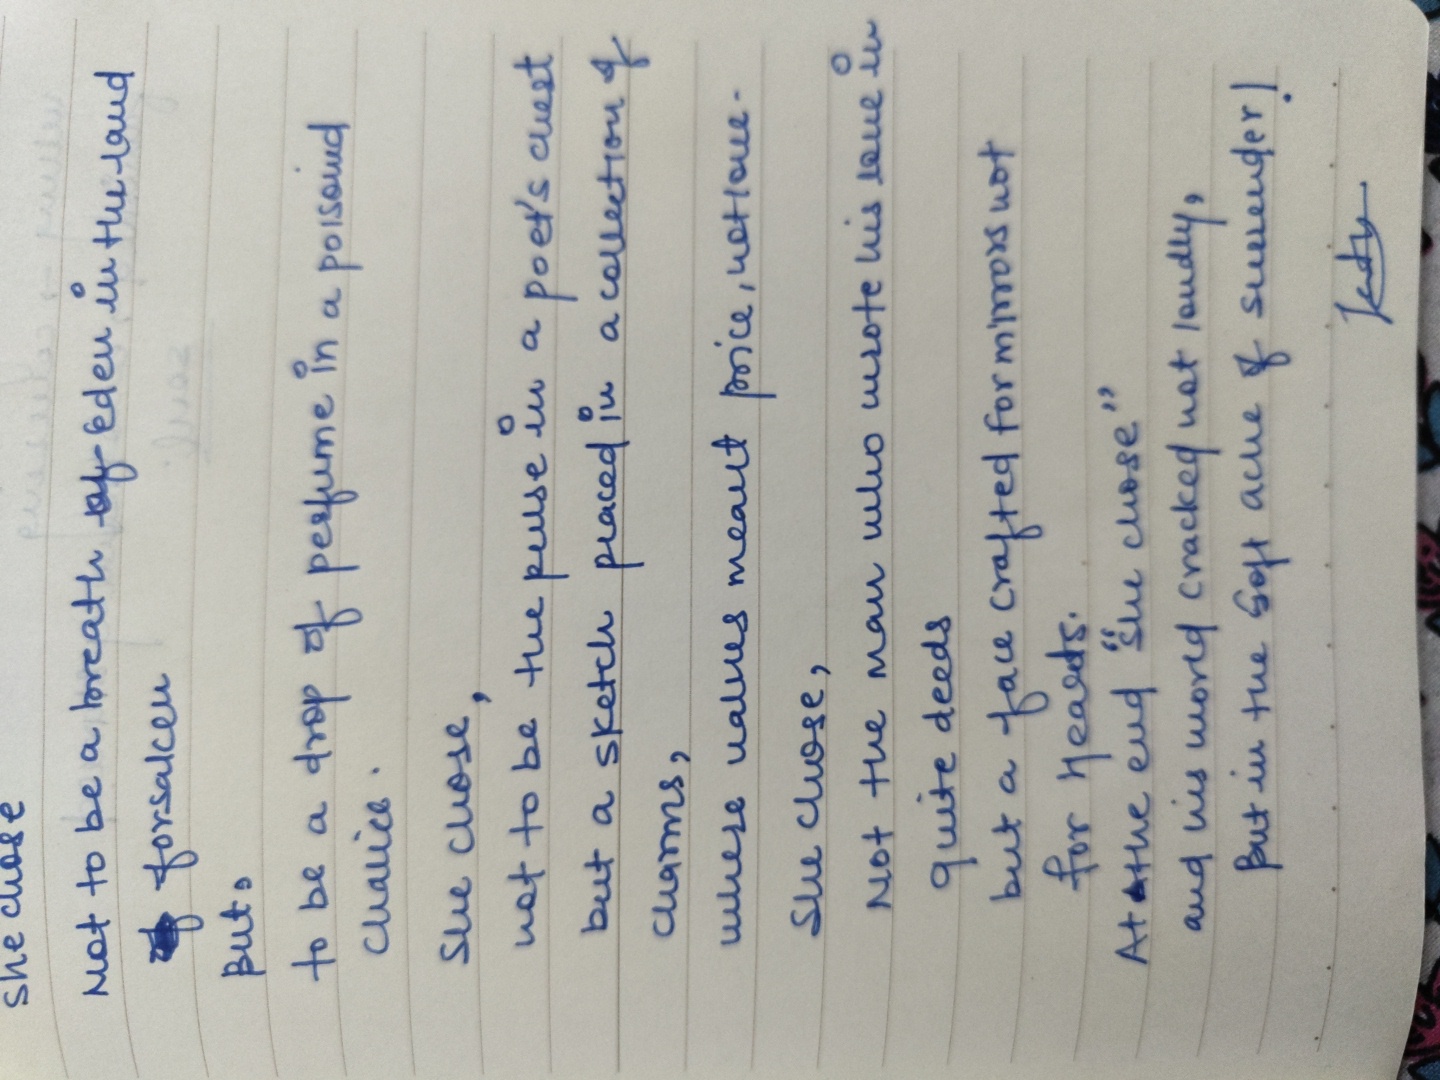 She chose
Not to be a breath of Eden in the land
of forsaken
But,
to be a drop of perfume in a poisoind
chalice.
She chose,
not to be the pulse in a poet's chest
but a sketch placed in a collection of
charms,
where values meant price, not love.
She chose,
Not the man who wrote his love in
quite deeds
but a face crafted for mirrors not
for Hearts.
At the end "she chose"
and his world cracked not loudly,
But in the soft ache of surrender!